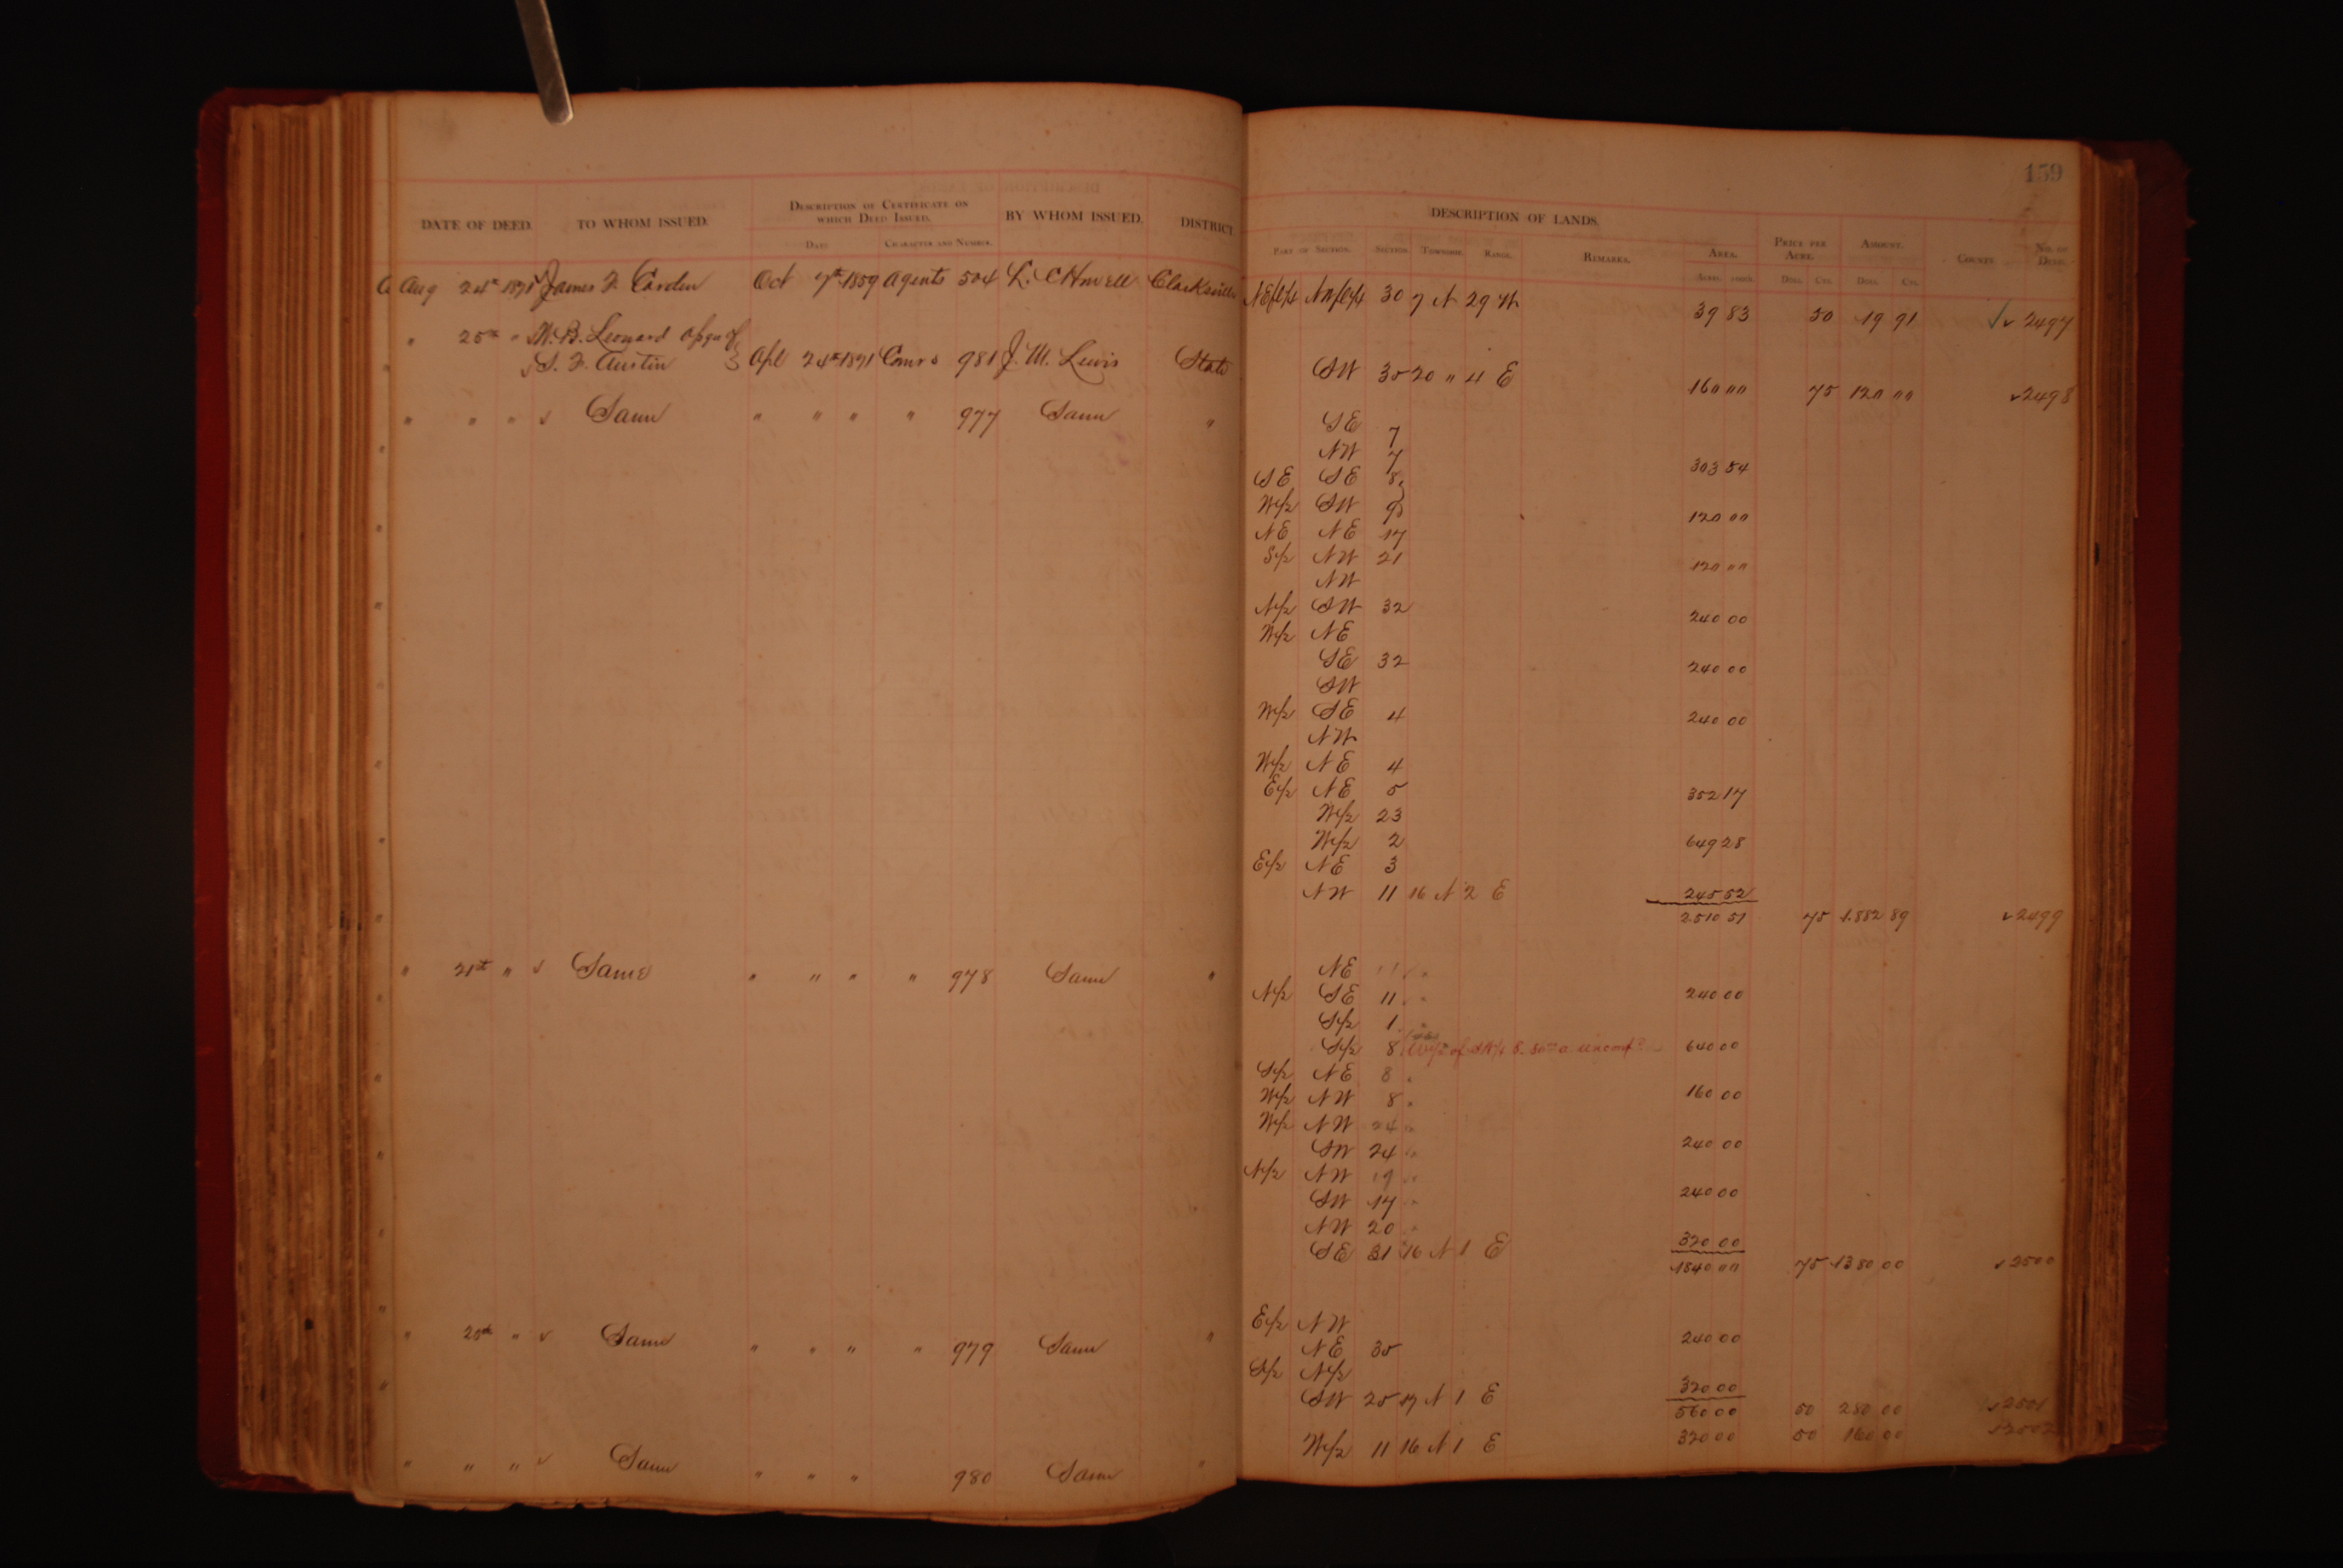 159
DATE OF DEED. TO WHOM ISSUED. DESCRIPTION OF CERTIFICATE ON WHICH DEED ISSUED. BY WHOM ISSUED. DISTRICT
DATE CHARACTER AND NUMBER.
DESCRIPTION OF LANDS.
PART OF SECTION. SECTION. TOWNSHIP. RANGE. REMARKS. AREA. PRICE PER ACRE. AMOUNT. COUNTY NO. OF DEED.
ACRES DOLL. CTS. DOLL. CTS.
Aug 24th 1871 James F. Carden Oct 7th 1859 Agents 504 L. C. Howell Clarksville NE fl 1/4 NW fl 1/4 30 7 N 29 W 39 83 50 19 91 2497
" 25th " W. B. Leonard
S. F. Austin Apl 24th 1871 Comrs 981 J. M. Lewis State SW 35 20 " 4 E 160 00 75 120 00 2498
" " " Same " " " " 977 Same " SE 7
NW 7 303 54
SE SE 8
W/2 SW 9 120 00
NE NE 17
S/2 NW 21 120 00
NW
N/2 SW 32 240 00
W/2 NE
SE 32 240 00
SW
W/2 SE 4 240 00
NW
W/2 NE 4
E/2 NE 5 352 17
W/2 23
W/2 2 649 28
E/2 NE 3
NW 11 16 N 2 E 245 52
2510 51 75 1.882 89 2499
" 21st " Same " " " " 978 Same " NE 11 "
N/2 SE 11 " 240 00
S/2 1 "
S/2 8 640 00
S/2 NE 8 "
W/2 NW 8 " 160 00
W/2 NW 24 "
SW 24 " 240 00
N/2 NW 19 "
SW 17 " 240 00
NW 20 "
SE 31 16 N 1 E 320 00
1840 00 75 1380 00 2500
E/2 NW
" 25th " Same " " " " 979 Same " NE 35 240 00
S/2 N/2
SW 25 17 N 1 E 320 00
560 00 50 280 00 2501
" " " Same " " " 980 Same " W/2 11 16 N 1 E 320 00 50 160 00 2502